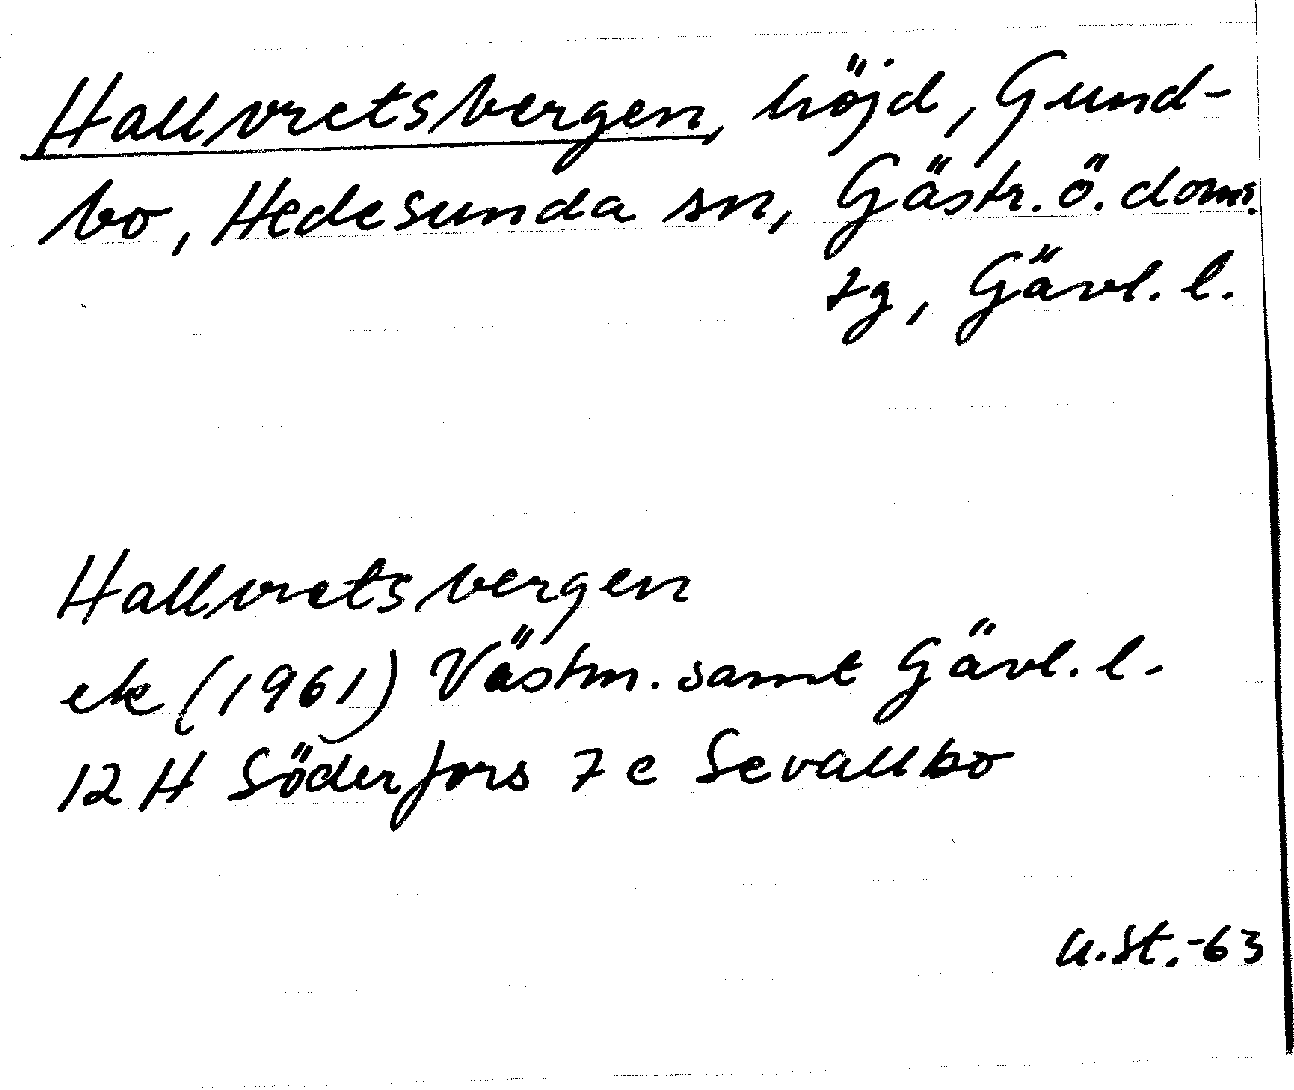 Hallvretsbergen, höjd, Gund-
bo, Hedesunda sn, Gästr. ö. doms.
tg, Gävl. l.
Hallvretsbergen
ek (1961) Västm. samt Gävl. l.
12 H Söderfors 7 c Sevallbo
U.St.-63